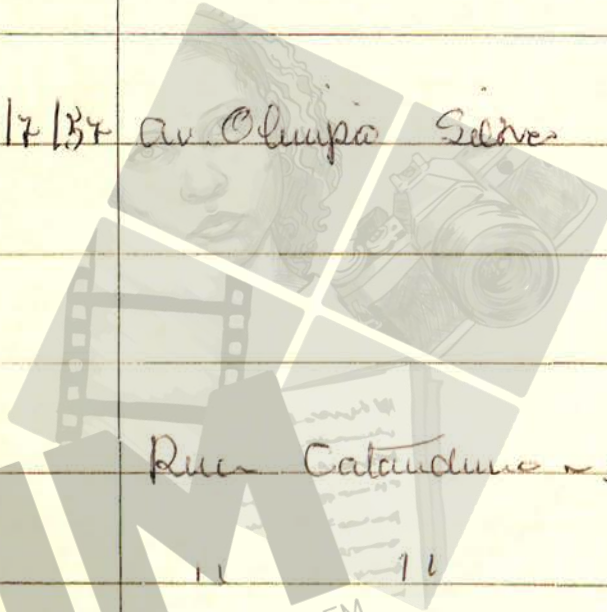 /7/57 av. Olimpio Silva
Rua Catanduva n.
" "
M
EM